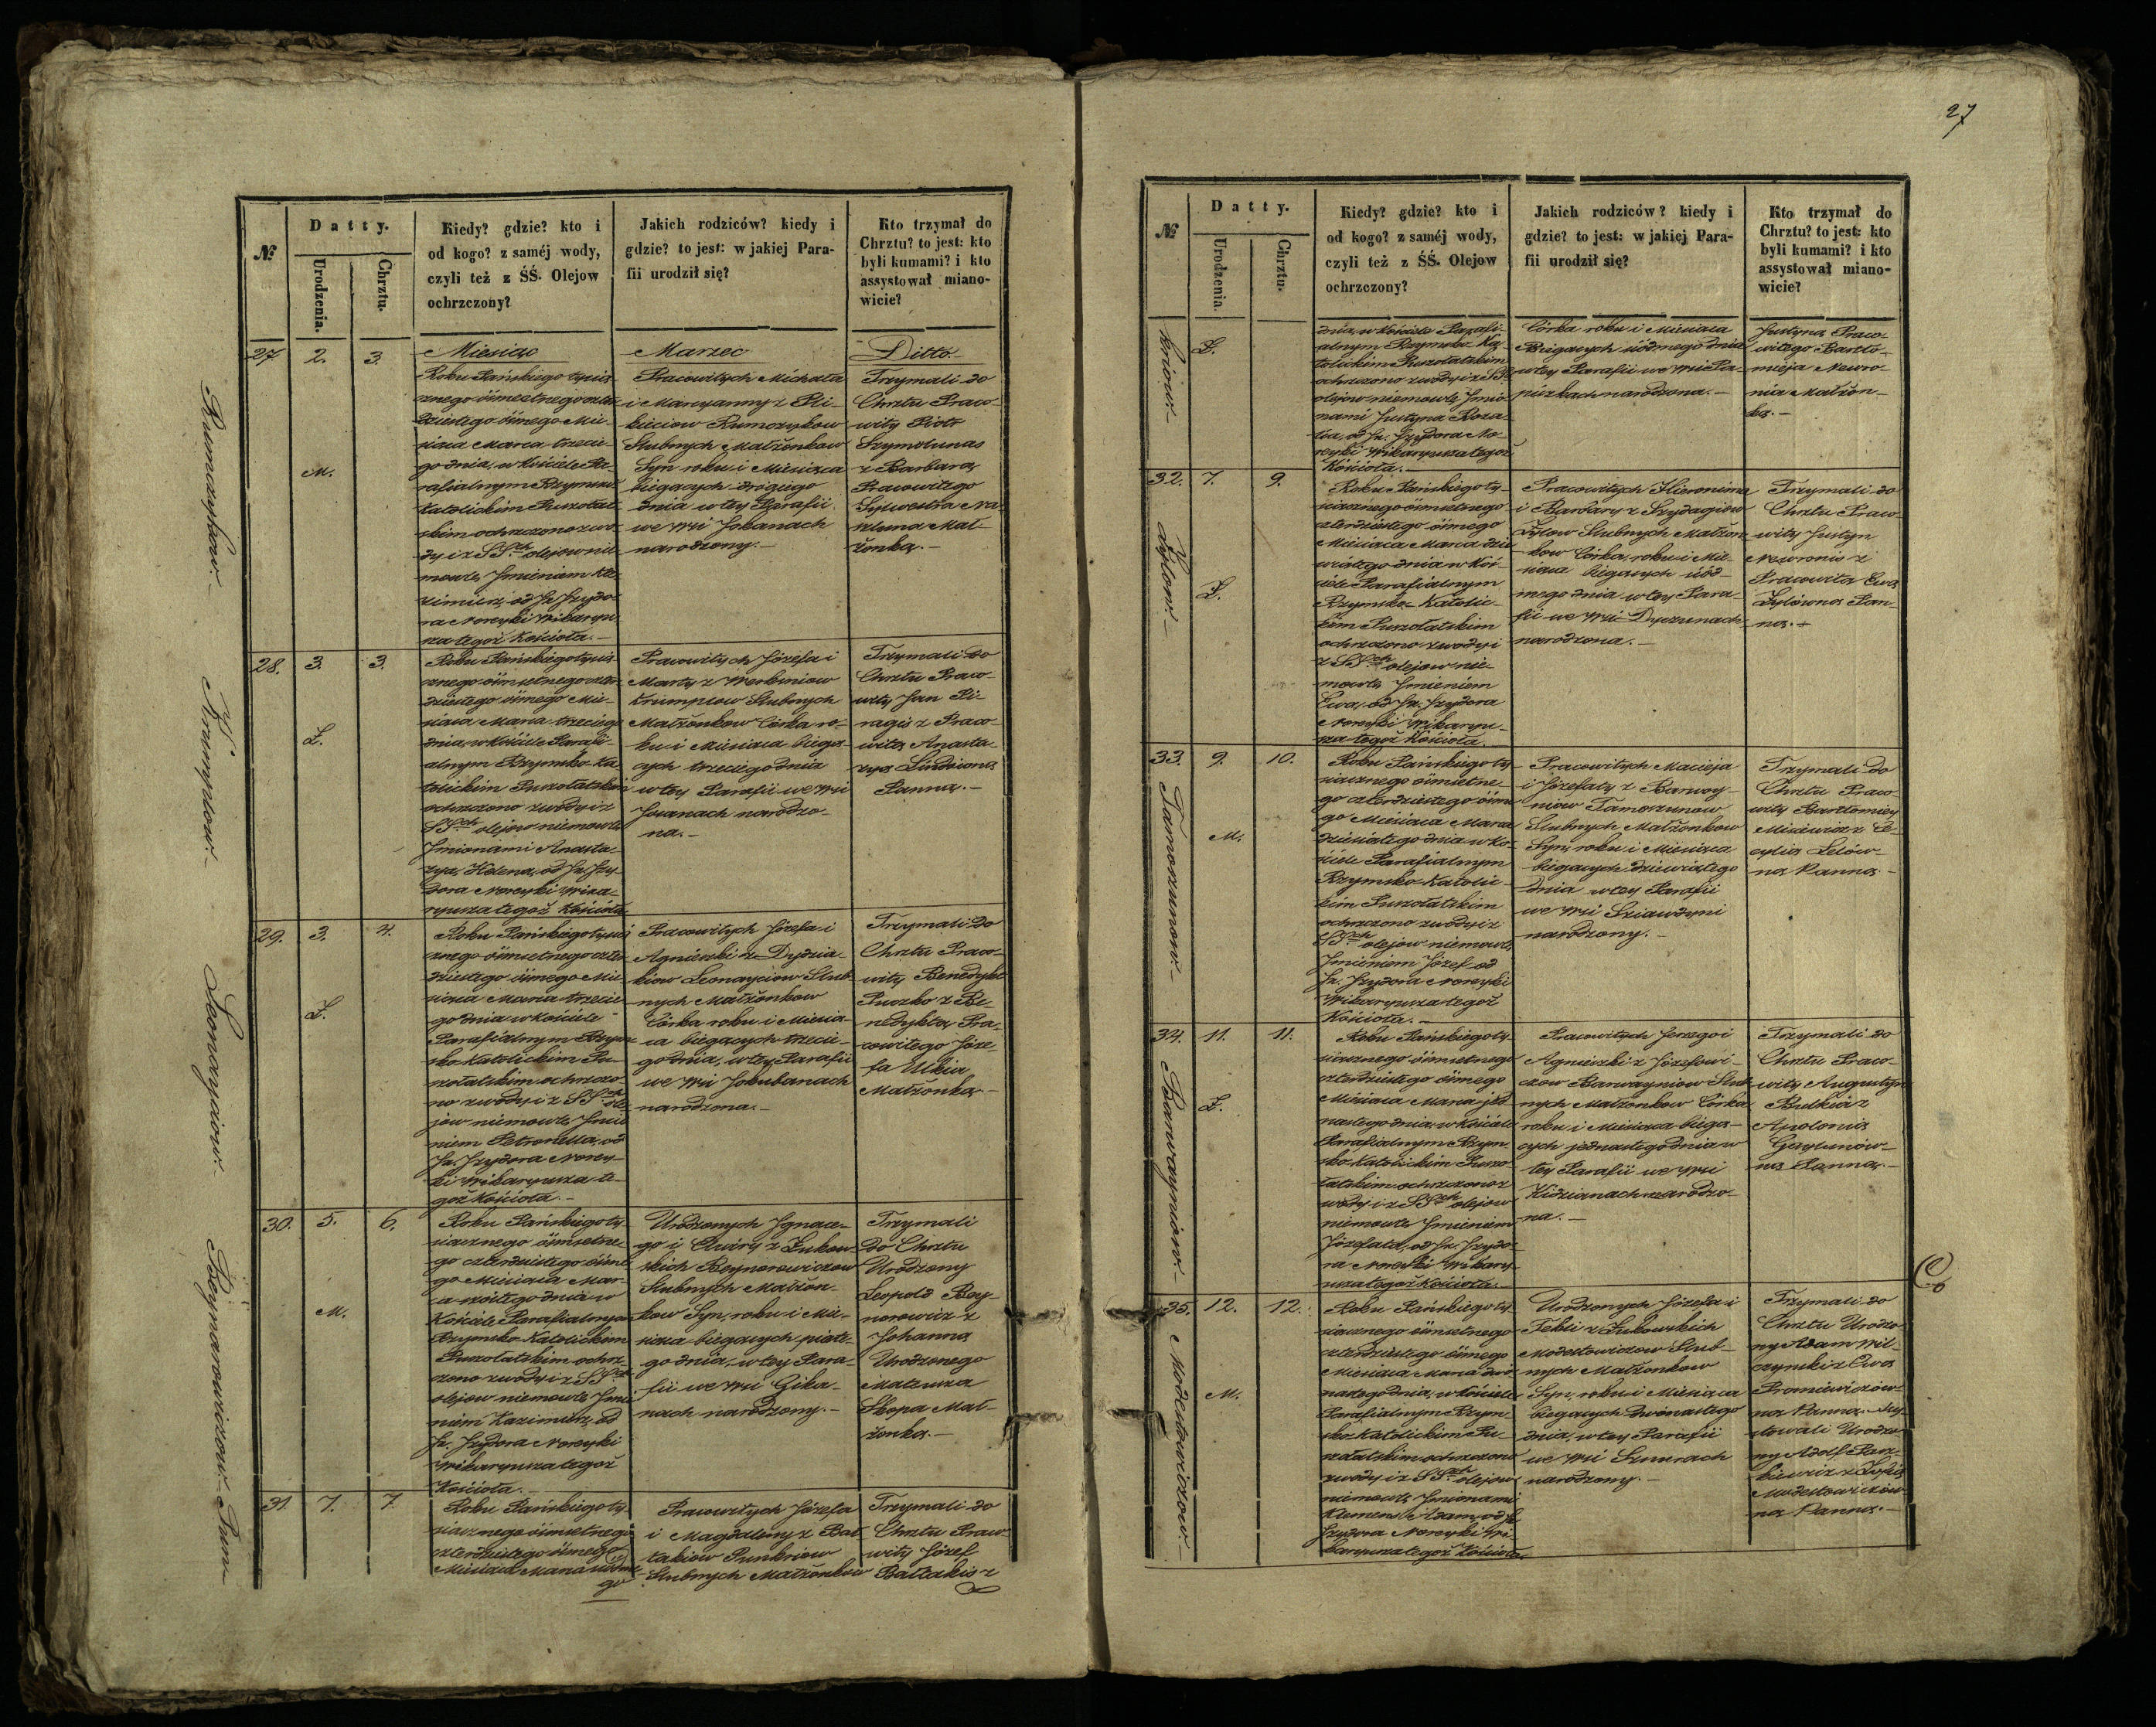 27
№
Datty.
Urodzenia.
Chrztu.
Kiedy? gdzie? kto i
od kogo? z saméj wody,
czyli też z ŚŚ. Olejow
ochrzczony?
Jakich rodziców? kiedy i
gdzie? to jest: w jakiej Para-
fii urodził się?
Kto trzymał do
Chrztu? to jest: kto
byli kumami? i kto
assystował miano-
wicie?
27. 2. 3.
M.
Miesiąc
Roku Pańskiego tysią-
cznego ośmsetnego czter-
dziestego ósmego Mie-
siąca Marca trzecie-
go dnia, w Kościele Pa-
rafialnym Rzymsko
Katolickim Puszołat-
skim ochrzczono z wo-
dy i z SSch olejow nie-
mowle Imieniem Ka-
zimierz, od Jx. Izydo-
ra Noreyki Wikaryu-
sza tegoż Kościoła.-
Marzec
Pracowitych Michała
i Maryanny z Pli-
Slubnych Małżonkow
Syn roku i Miesiąca
biegących drugiego
dnia w tey Parafii
we Wsi Jokanach
narodzony.-
Ditto
Trzymali do
Chrztu Praco-
wity Piotr
Szymolunas
z Barbarą
Pracowitego
Sylwestra
Mał-
żonką.-
28. 3. 3.
Ż.
Roku Pańskiego tysią-
cznego ośmsetnego czter-
dziestego ósmego Mie-
siąca Marca trzeciego
dnia, w Kościele Parafi-
alnym Rzymsko-Ka-
tolickim Puszołatskim
ochrzczono z wody i z
SSch olejow niemowle
Imionami Anasta-
zya, Helena, od Jx. Izy-
dora Noreyki Wika-
ryusza tegoż Kościoła
Pracowitych Józefa i
Marty z
Krumplow Slubnych
Małżonkow Córka ro-
ku i Miesiąca biegą-
cych trzeciego dnia
w tey Parafii we Wsi
narodzo-
na.-
Trzymali do
Chrztu Praco-
wity Jan Pi-
ragis z Praco-
witą Anasta-
zyą
Panną.-
29. 3. 4.
Ż.
Roku Pańskiego tysią-
cznego ośmsetnego czter-
dziestego ósmego Mie-
siąca Marca trzecie-
go dnia w Kościele
Parafialnym Rzym-
sko Katolickim Pu-
szołatskim ochrzczo-
no z wody i z SSch ole-
jow niemowle Imie-
niem Petronella, od
Jx. Izydora Norey-
ki Wikaryusza te-
goż Kościoła.-
Pracowitych Józefa i
Agnieszki z Dydzia-
kiow Leonayciow Slub-
nych Małżonkow
Córka roku i Miesią-
ca biegących trzecie-
go dnia, w tey Parafii
we Wsi Jokubanach
narodzona.-
Trzymali do
Chrztu Praco-
wity Benedykt
Puszko z Be-
nedyktą Pra-
cowitego Józe-
fa
Małżonką-
30. 5. 6.
M.
Roku Pańskiego ty-
siącznego ośmsetne-
go czterdziestego ósme-
go Miesiąca Mar-
ca szóstego dnia w
Kościele Parafialnym
Rzymsko-Katolickim
Puszołatskim ochrz-
czono z wody i z SSch
olejow niemowle Imie-
niem Kazimierz, od
Jx. Izydora Noreyki
Wikaryusza tegoż
Kościoła.-
Urodzonych Ignace-
go i Elwiry z Żukow-
skich Boynorowiczow
Slubnych Małżon-
kow Syn, roku i Mie-
siąca biegących piąte-
go dnia, w tey Para-
fii we Wsi Gika-
nach narodzony.-
Trzymali
do Chrztu
Urodzony
Leopold Boy-
norowicz z
Johanną
Urodzonego
Mateusza
Skopa Mał-
żonką.-
31. 7. 7.
Roku Pańskiego ty-
siącznego ośmsetnego
czterdziestego ósmego
Miesiąca Marca siódme-
go
Pracowitych Józefa
i Magdaleny z Bał-
takiow Punkriow
Slubnych Małżonkow
Trzymali do
Chrztu Praco-
wity Józef
Bałtakis z
Leonayciow
Boynarowiczow-
Pun-
№
Datty.
Urodzenia.
Chrztu.
Kiedy? gdzie? kto i
od kogo? z saméj wody,
czyli też z ŚŚ. Olejow
ochrzczony?
Jakich rodziców? kiedy i
gdzie? to jest: w jakiej Para-
fii urodził się?
Kto trzymał do
Chrztu? to jest: kto
byli kumami? i kto
assystował miano-
wicie?
kriow.-
Ż.
dnia, w Kościele Parafi-
alnym Rzymsko Ka-
tolickim Puszołatskim
ochrzczono z wody i z SSch
olejow niemowle Imio-
nami Justyna Roza-
lia, od Jx. Izydora No-
reyki Wikaryusza tegoż
Kościoła.-
Córka roku i Miesiąca
Biegących siódmego dnia
w tey Parafii we Wsi
narodzona.-
Justyną Praco-
witego Bartło-
mieja Newro-
nia Małżon-
ką.-
32. 7. 9.
Ż.
Roku Pańskiego ty-
siącznego ośmsetnego
czterdziestego ósmego
Miesiąca Marca dzie-
wiątego dnia w Koś-
ciele Parafialnym
Rzymsko-Katolic-
kim Puszołatskim
ochrzczono z wody i
z SSch olejow nie-
mowle Imieniem
Ewa, od Jx. Izydora
Noreyki Wikaryu-
sza tegoż Kościoła.
Pracowitych Hieronima
i Barbary z Szydagiow
Żylow Slubnych Małżon-
kow Córka, roku i Mie-
siąca biegących siód-
mego dnia w tey Para-
fii we Wsi
narodzona.-
Trzymali do
Chrztu Praco-
wity Justyn
Newronis z
Pracowitą Ewą
Żylówną Pan-
ną.-
33. 9. 10.
M.
Roku Pańskiego ty-
siącznego ośmsetne-
go czterdziestego ósme-
go Miesiąca Marca
dziesiątego dnia w Ko-
ściele Parafialnym
Rzymsko-Katolic-
kim Puszołatskim
ochrzczono z wody i z
SSch olejow niemowle
Imieniem Józef od
Jx. Izydora Noreyki
Wikaryusza tegoż
Kościoła.-
Pracowitych Macieja
i Józefaty z Barwoy-
niow Tamoszunow
Slubnych Małżonkow
Syn, roku i Miesiąca
biegących dziewiątego
dnia w tey Parafii
we Wsi Sziawdyni
narodzony.-
Trzymali do
Chrztu Praco-
wity Bartłomiey
Misiewicz z Ce-
cylią Lelów-
ną Panną-
Tamoszunow-
34. 11. 11.
Ż.
Roku Pańskiego ty-
siącznego ośmsetnego
czterdziestego ósmego
Miesiąca Marca jede-
nastego dnia, w Kościele
Parafialnym Rzym-
sko-Katolickim Puszo-
łatskim ochrzczono z
wody i z SSch olejow
niemowle Imieniem
Józefata, od Jx. Izydo-
ra Noreyki Wikary-
usza tegoż Kościoła.-
Pracowitych Jerzego i
Agnieszki z Józefowi-
czow Barwayniow Slub-
nych Małżonkow Córka
roku i Miesiąca biegą-
cych jednastego dnia w
tey Parafii we Wsi
Kidzianach narodzo-
na.-
Trzymali do
Chrztu Praco-
wity Augustyn
Butkiś z
Apolonią
Panną.-
Barwayniow-
35. 12. 12.
M.
Roku Pańskiego ty-
siącznego ośmsetnego
czterdziestego ósmego
Miesiąca Marca dwu-
nastego dnia, w Kościele
Parafialnym Rzym-
sko-Katolickim Pu-
szołatskim ochrzczono
z wody i z SSch olejow
niemowle Imionami
Klemens Adam, od Jx.
Izydora Noreyki Wi-
karyusza tegoż Kościoła
Urodzonych Józefa i
Tekli z Żukowskich
Modestowiczow Slub-
nych Małżonkow
Syn, roku i Miesiąca
biegących dwónastego
dnia, w tey Parafii
we Wsi Szmurach
narodzony.-
Trzymali do
Chrztu Urodzo-
ny Adam Wil-
czyński z Ewą
Promiewiczów-
ną Panną. Asy-
stowali Urodzo-
ny Adolf
z Zofią
Modestowiczów-
ną Panną.-
Modestowiczow.-